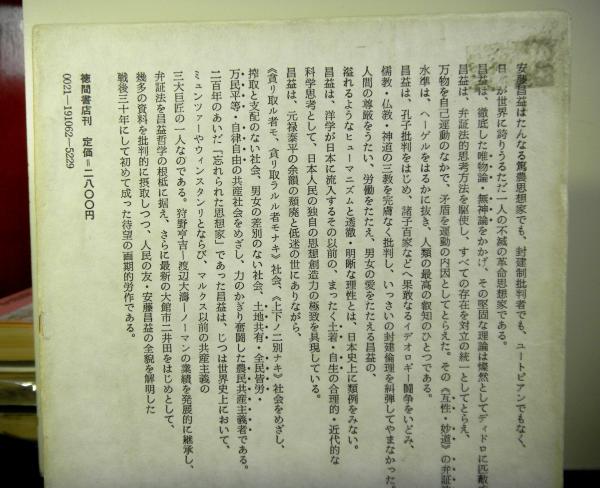 安藤昌益はたんなる篤農思想家でも、封建制批判者でも、ユートピアンでもなく、
日　が世界に誇りうるただ一人の不滅の革命思想家である。
昌益は、徹底した唯物論・無神論をかかげ、その堅固な理論は燦然としてディドロに匹敵
昌益は、弁証法的思考方法を駆使し、すべての存在を対立の統一としてとらえ、
万物を自己運動のなかで、矛盾を運動の内因としてとらえた。その《互性・妙道》の弁証
水準は、ヘーゲルをはるかに抜き、人類の最高の叡知のひとつである。
昌益は、孔子批判をはじめ、諸子百家などへ果敢なるイデオロギー闘争をいどみ、
儒教・仏教・神道の三教を完膚なく批判し、いっさいの封建倫理を糾弾してやまなかった。
人間の尊厳をうたい、労働をたたえ、男女の愛をたたえる昌益の、
溢れるようなヒューマニズムと透徹・明晰な理性とは、日本史上に類例をみない。
昌益は、洋学が日本に流入するその以前の、まったく土着・自生の合理的・近代的な
科学思考として、日本人民の独自の思想創造力の極致を具現している。
昌益は、元禄泰平の余韻の頽廃と低迷の世にありながら、
《貪り取ル者モ、貪り取ラルル者モナキ》社会、《上下ノ二別ナキ》社会をめざし、
搾取と支配のない社会、男女の差別のない社会、土地共有・全民皆労・
万民平等・自律自由の共産社会をめざし、力のかぎり奮闘した農民共産主義者である。
二百年のあいだ「忘れられた思想家」であった昌益は、じつは世界史上において、
ミュンツァーやウィンスタンリとならび、マルクス以前の共産主義の
三大巨匠の一人なのである。狩野亨吉―渡辺大濤―ノーマンの業績を発展的に継承し、
弁証法を昌益哲学の根柢に据え、さらに最新の大館市二井田をはじめとして、
幾多の資料を批判的に摂取しつつ、人民の友・安藤昌益の全貌を解明した
戦後三十年にして初めて成った待望の画期的労作である。
徳間書店刊　定価＝二八〇〇円
0021―191062―5229